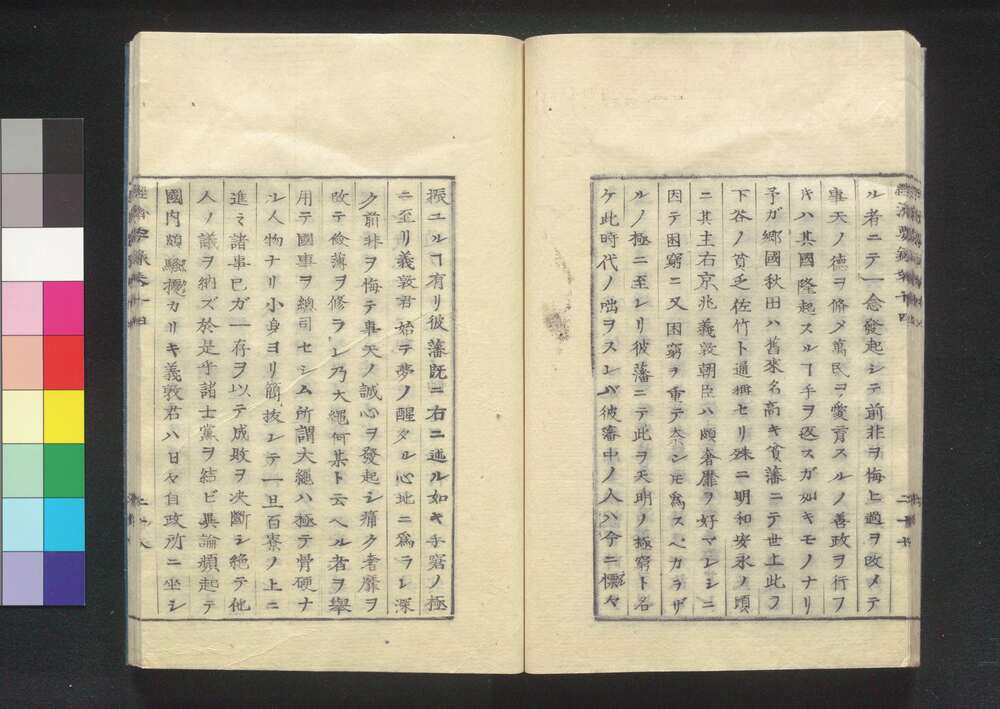 ル者ニテ一念發起シテ前非ヲ悔ヒ過ヲ改メテ
事天ノ德ヲ脩メ萬民ヲ愛育スルノ善政ヲ行フ
キハ其國隆起スルヿ手ヲ返スガ如キモノナリ
予ガ郷國秋田ハ舊來名高キ貧藩ニテ世上此ヲ
下谷ノ貧乏佐竹ト通稱セリ殊ニ明和安永ノ頃
ニ其主右京兆義敦朝臣ハ頗奢靡ヲ好マレシニ
因テ困窮ニ又困窮ヲ重テ奈シトモ爲スベカラザ
ルノ極ニ至レリ彼藩ニテ此ヲ天明ノ極窮ト名
ケ此時代ノ咄ヲスレバ彼藩中ノ人ハ今ニ慄々
振ユルヿ有リ彼藩既ニ右ニ述ル如キ辛窮ノ極
ニ至リ義敦君始テ夢ノ醒タル心地ニ爲ラレ深
ク前非ヲ悔テ事天ノ誠心ヲ發起シ痛ク奢靡ヲ
改テ儉薄ヲ修ラレ乃大繩何某ト云ヘル者ヲ擧
用テ國事ヲ總司セシム所謂大繩ハ極テ骨硬ナ
ル人物ナリ小身ヨリ簡拔シテ一旦百寮ノ上ニ
進ミ諸事已ガ一存ヲ以テ成敗ヲ决斷シ絶テ他
人ノ議ヲ納ズ於是乎諸士黨ヲ結ビ異論頻起テ
國内頗騷擾カリキ義敦君ハ日々自政所ニ坐シ